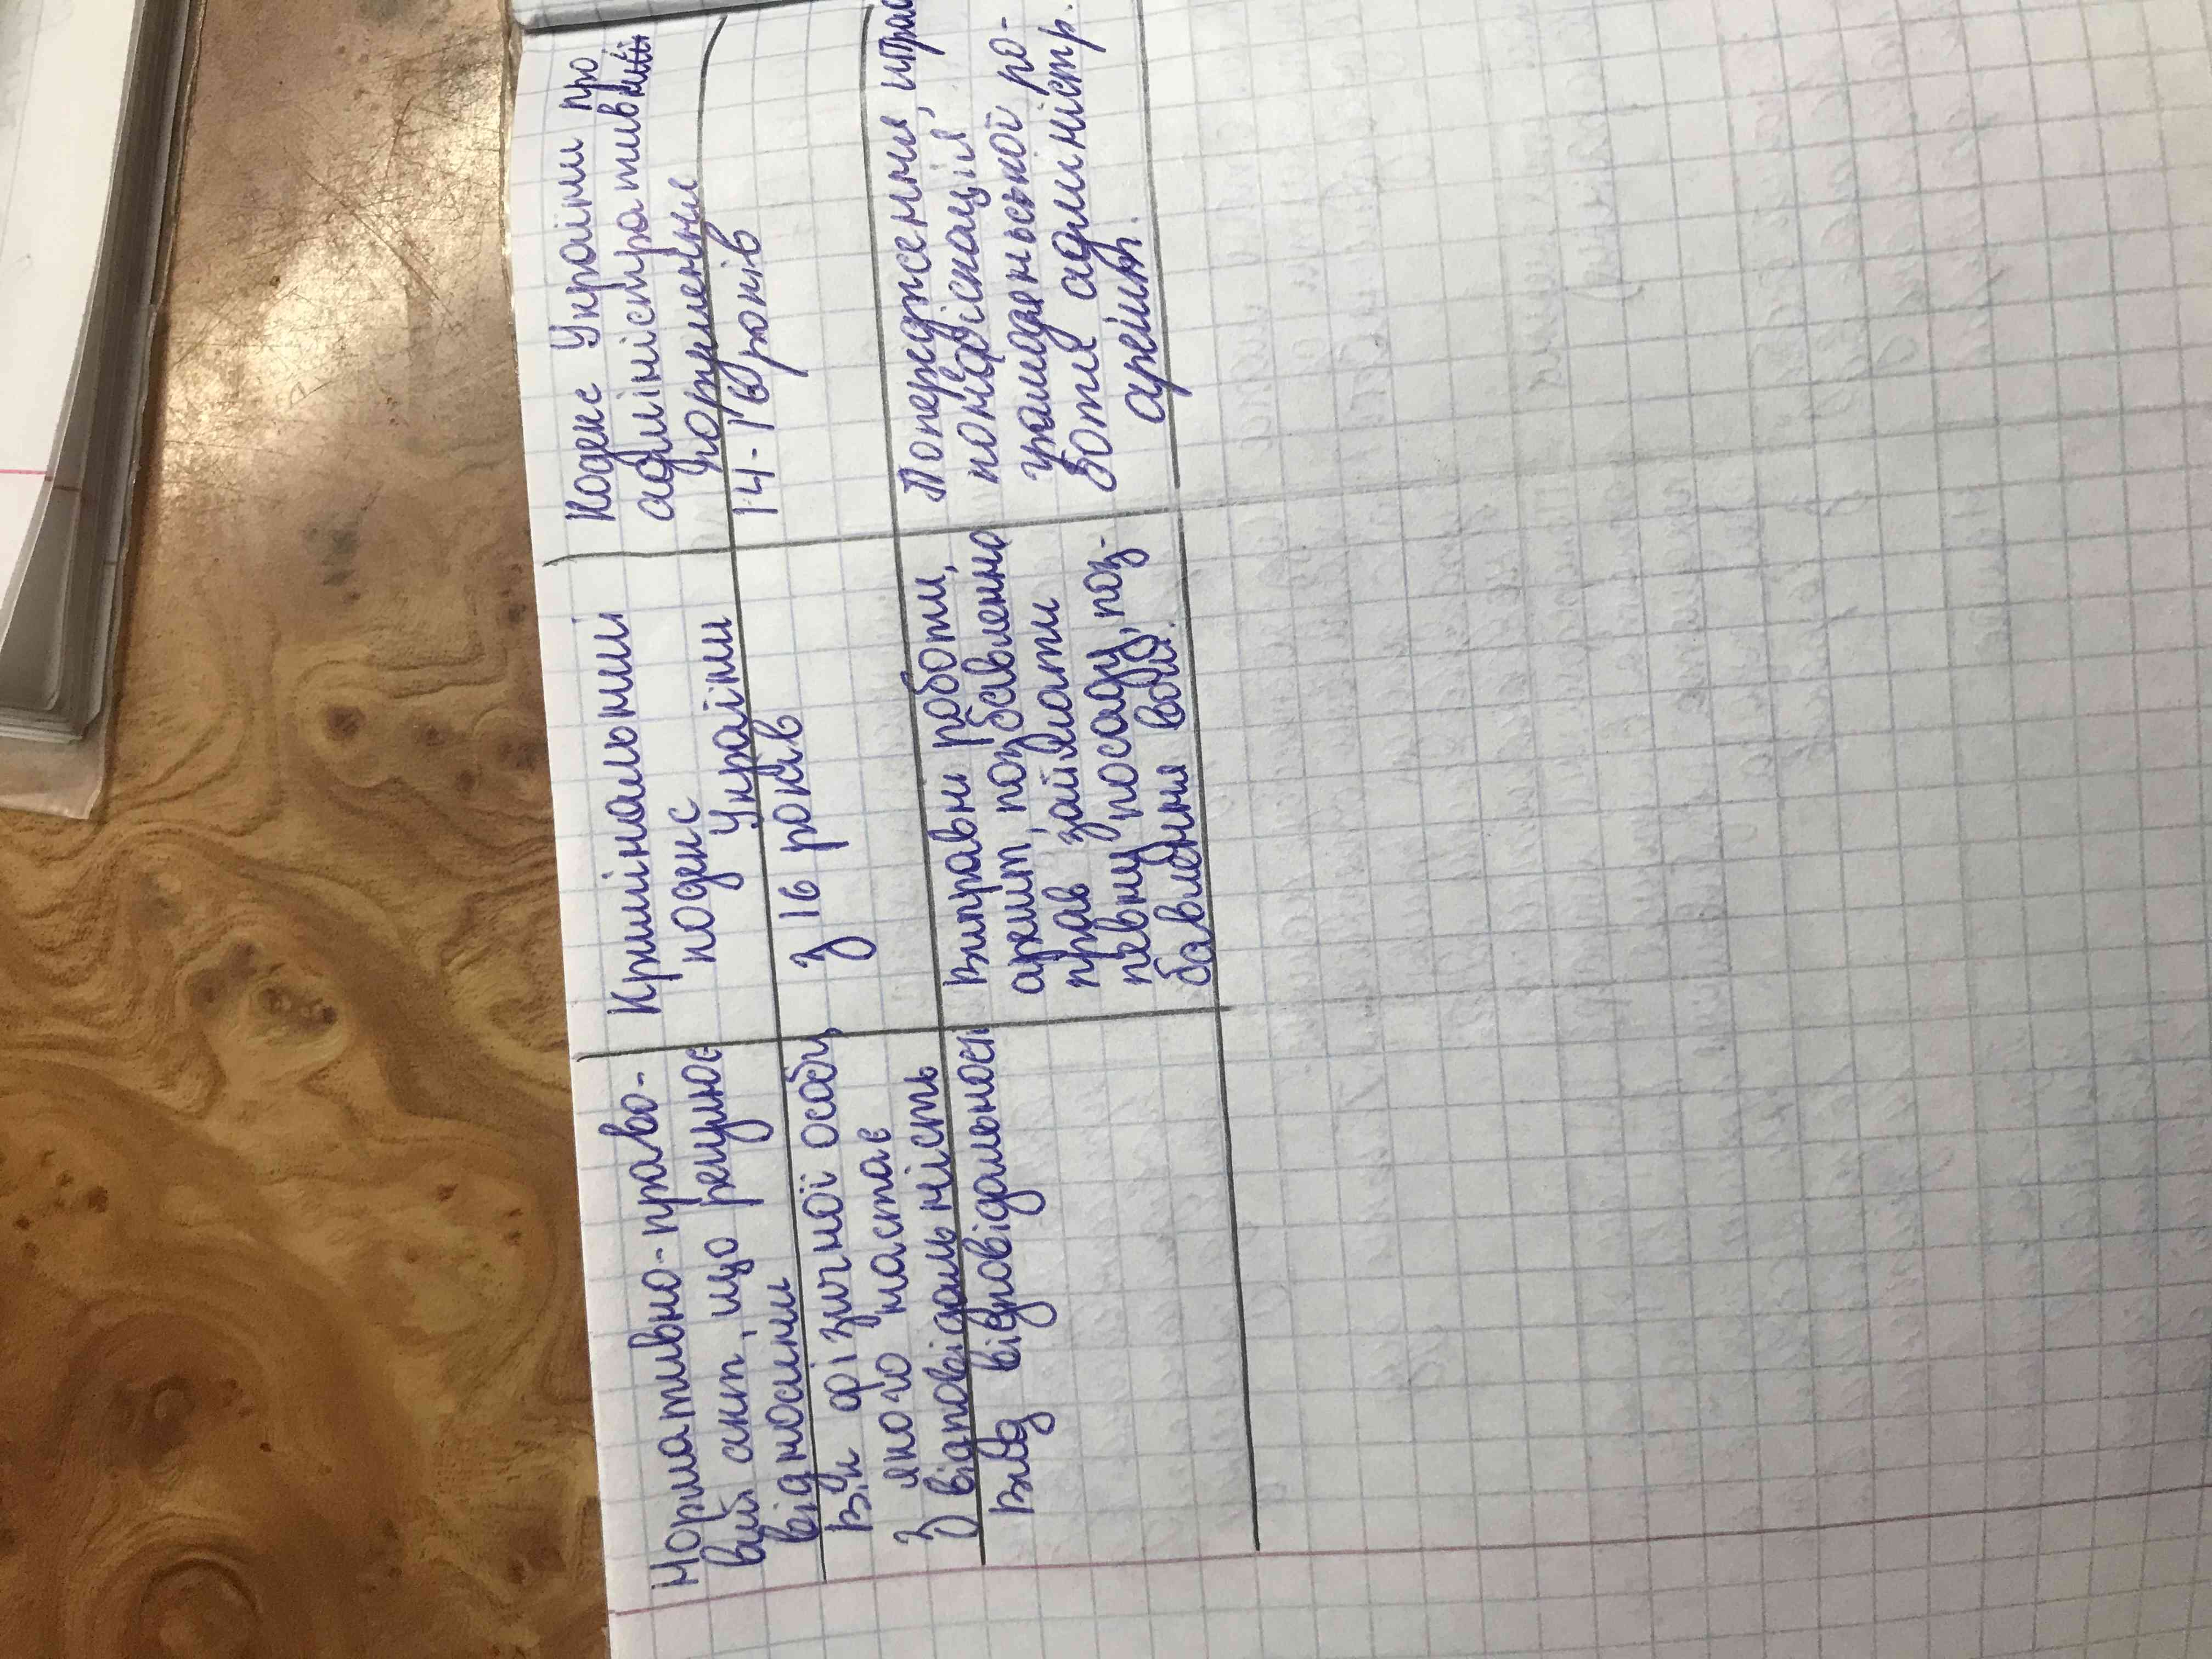 Нормативно-право-
вий акт, що регулює
відносини
Кримінальний
кодекс
України
Кодекс України про
адміністративні
порушення
Вік фізичної особи,
якого настає
відповідальність
З 16 років
14-16 років
Вид відповідальності
Виправні роботи,
арешт, позбавленно
прав займати
певну посаду, поз-
бавлення волі.
Попередження, штраф
конфіскація,
громадянської ро-
боти адміністр.
арешт.